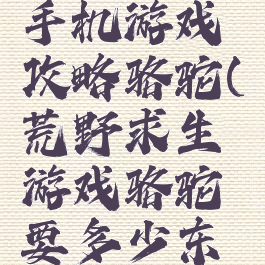 手机游戏
攻略骆驼(
荒野求生
游戏骆驼
要多少东